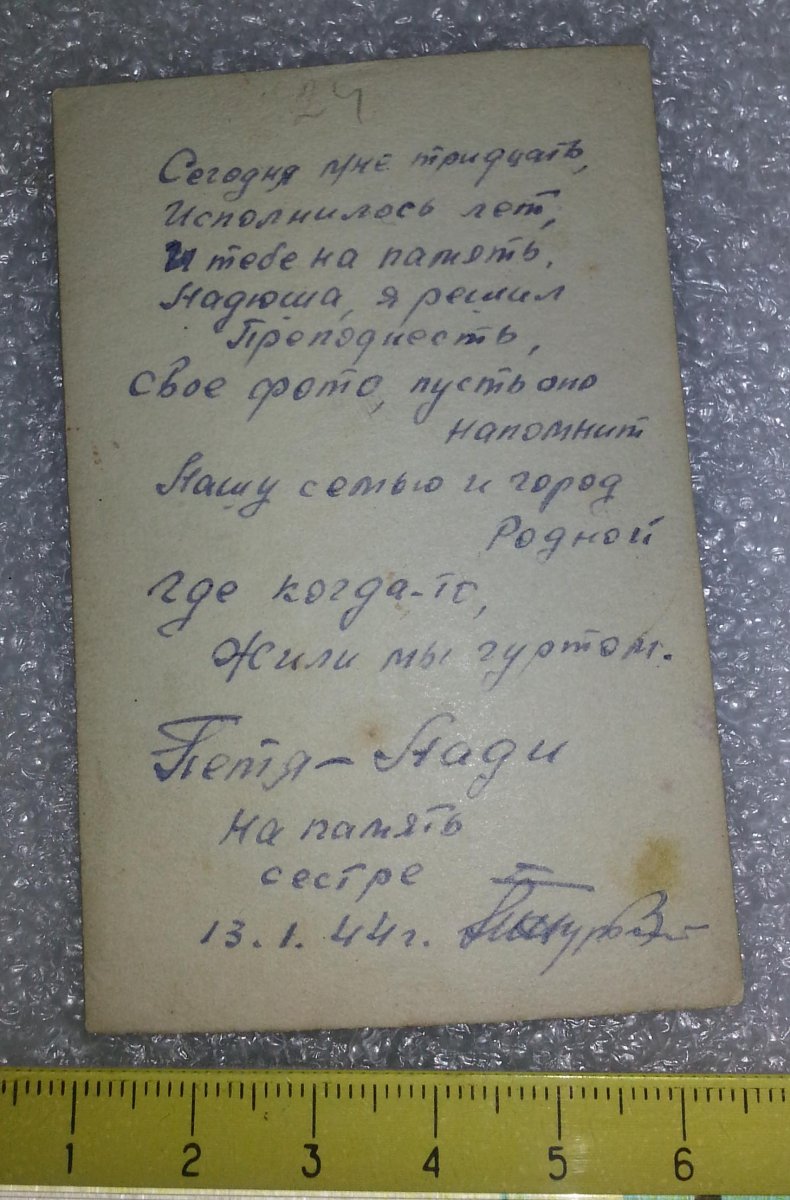 24
Сегодня мне тридцать,
Исполнилось лет,
И тебе на память,
Надюша, я решил
Преподнесть,
Свое фото, пусть оно
напомнит
Нашу семью и город
Родной
Где когда-то,
Жили мы гуртом.
Петя — Нади
На память
сестре
13.1.44г.
1 2 3 4 5 6